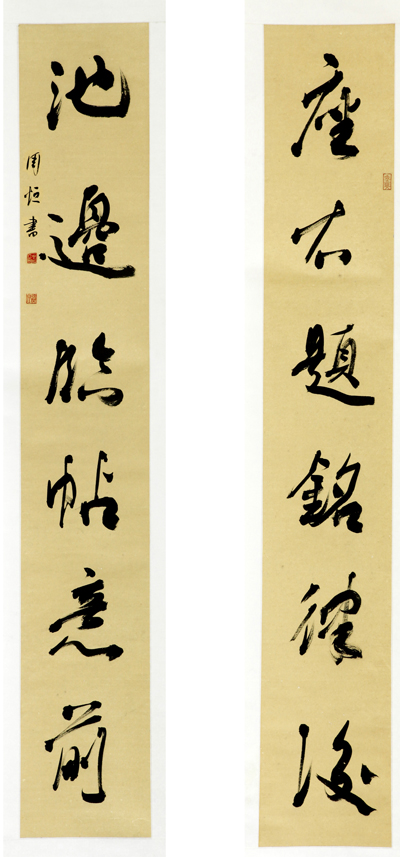 座右題銘律後
池邊臨帖意前
周恒書